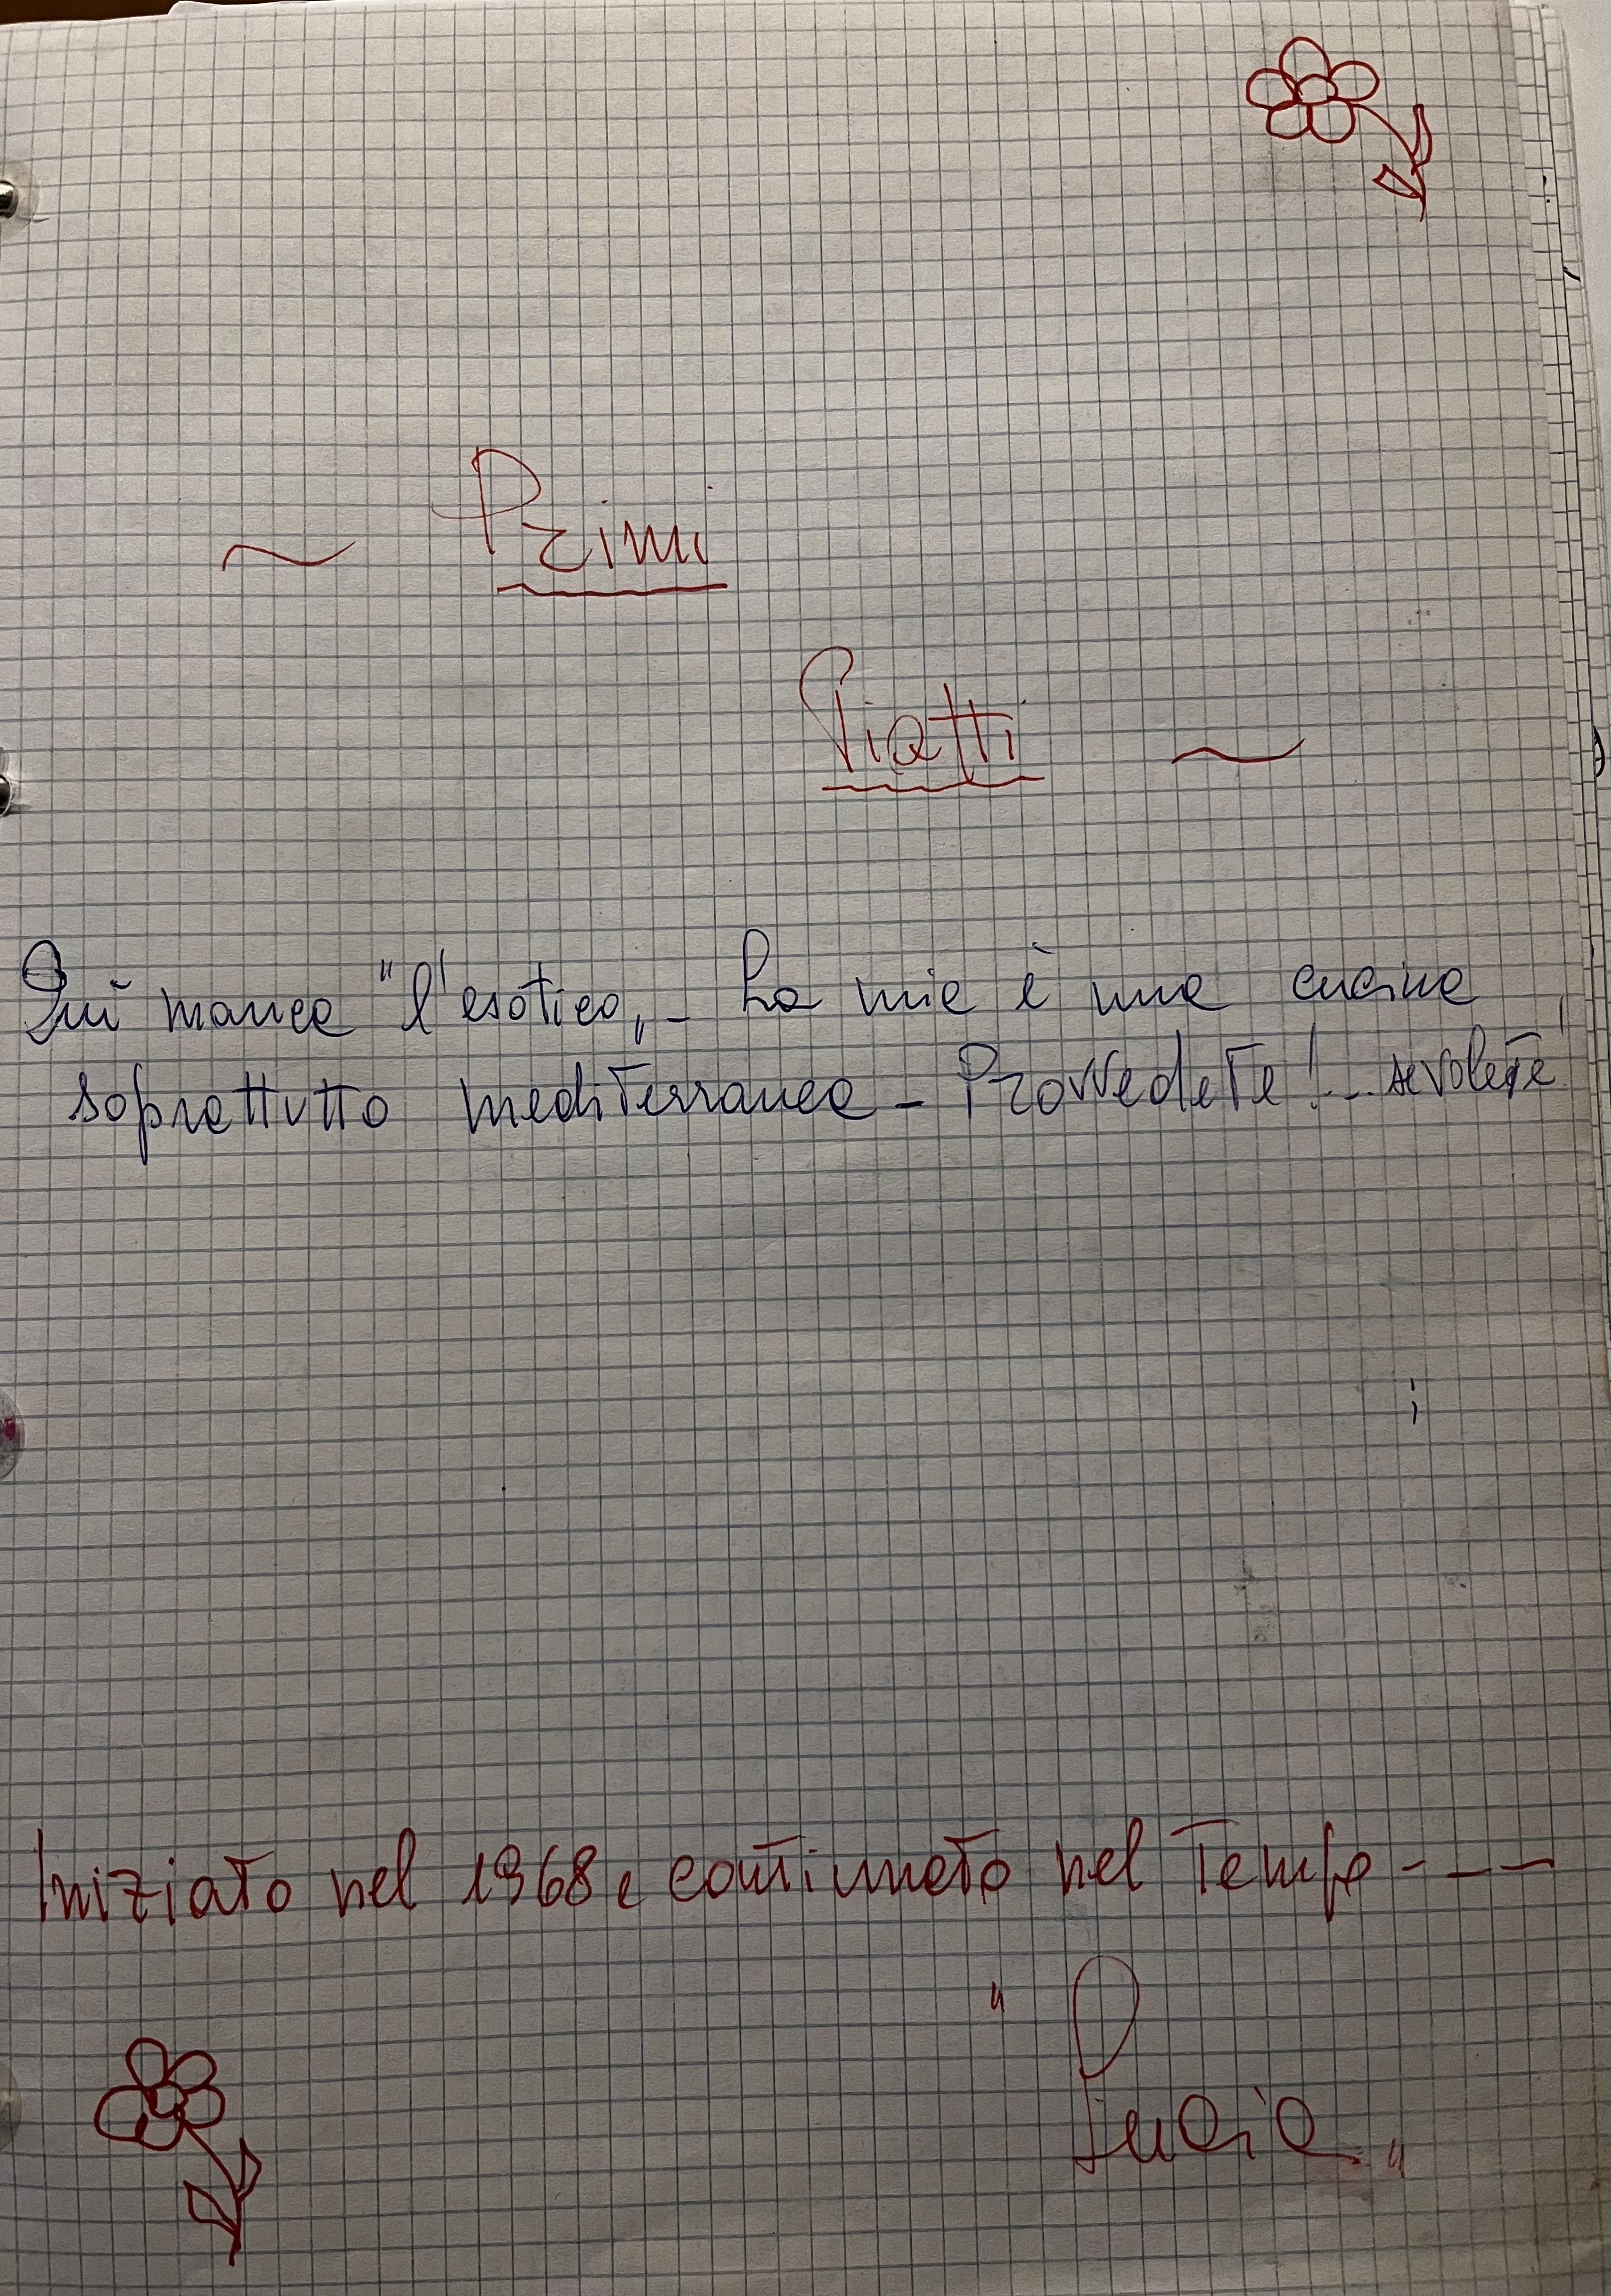 ~ Primi
Piatti ~
Quì manca "l'esotico„ - La mia è una cucina
soprattutto mediterranea - Provvedete!... se volete!
Iniziato nel 1968 e continuato nel Tempo - - -
" Lucia „